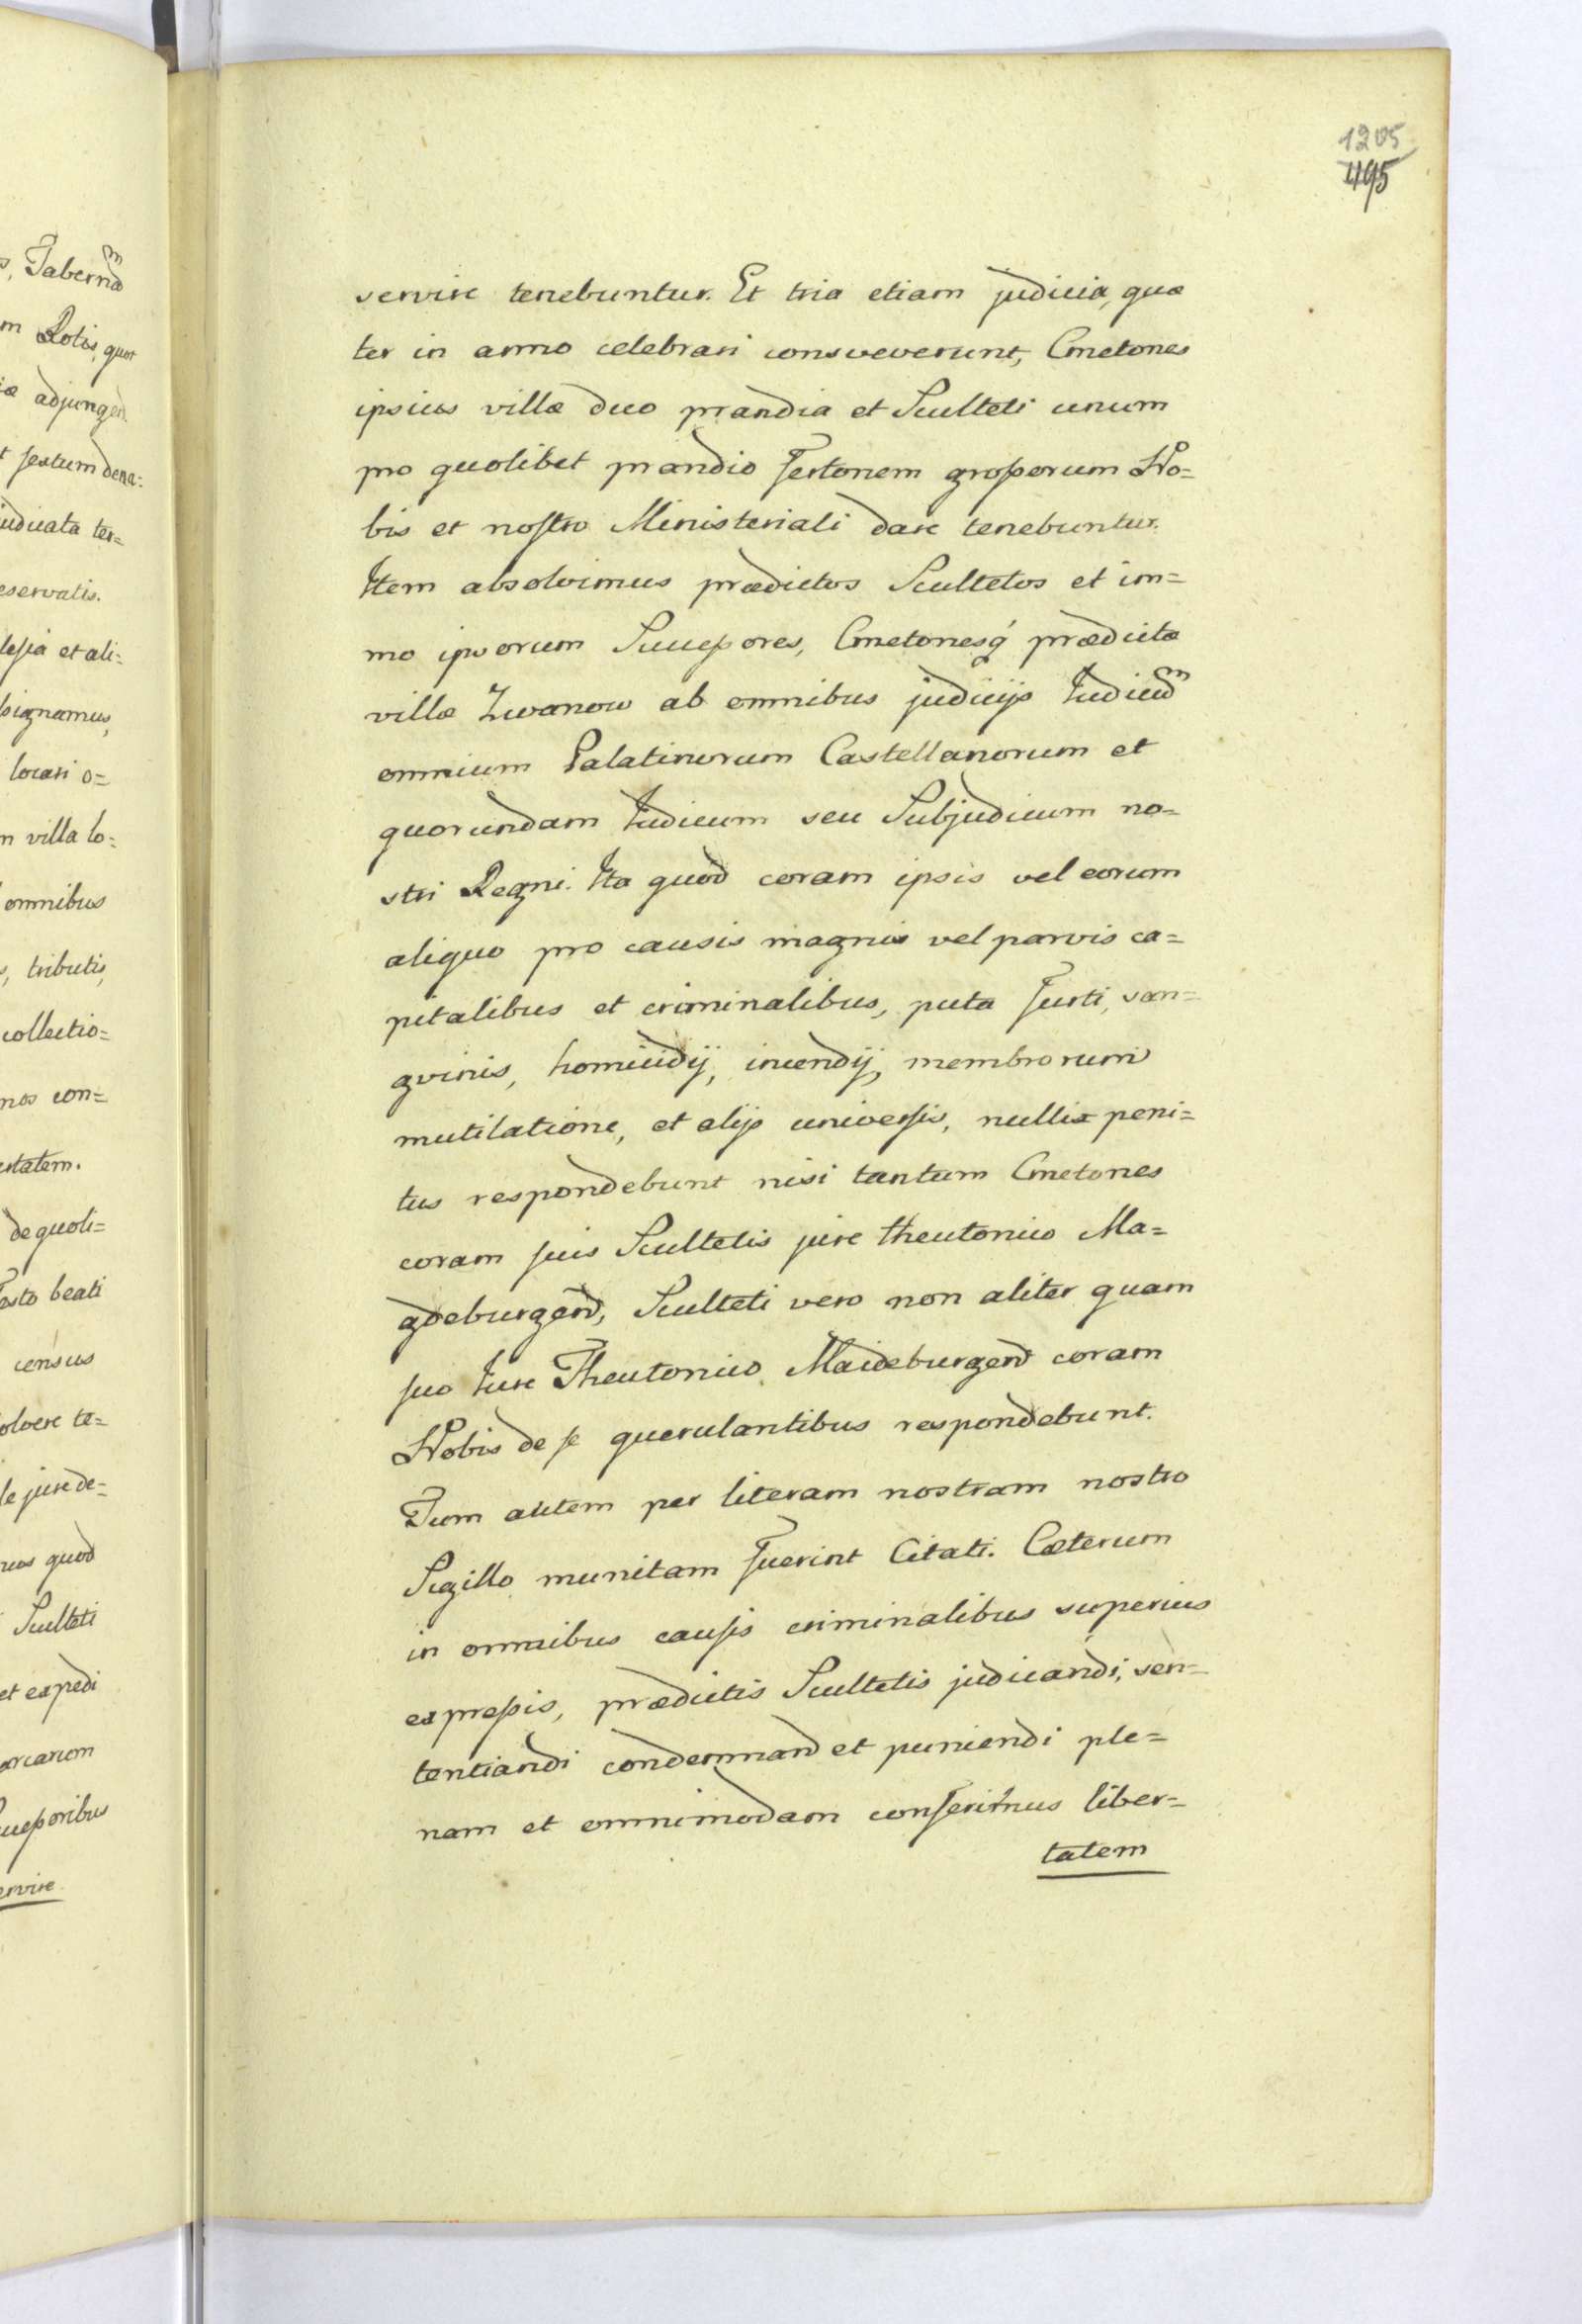 1205
495
servire tenebuntur. Et tria etiam judicia, quæ
ter in anno celebrari consveverunt, Cmetones
ipsius villæ duo prandia et Sculteti unum
pro quolibet prandio fertonem grossorum No=
bis et nostro Ministeriali dare tenebuntur.
Item absolvimus prædictos Scultetos et im=
mo ipsorum Successores, Cmetonesq́ prædictæ
villæ Zwanow ab omnibus judicijs Iudicum
omnium Palatinorum Castellanorum et
quorundam Iudicum seu Subjudicum no=
stri Regni. Ita quod coram ipsis vel eorum
aliquo pro causis magnis vel parvis ca=
pitalibus et criminalibus, puta furti, san=
gvinis, homicidij, incendij, membrorum
mutilatione, et alijs universis, nullis peni=
tus respondebunt nisi tantum Cmetones
coram suis Scultetis jure theutonico Ma=
gdeburgen, Sculteti vero non aliter quam
suo Iure Theutonico Maideburgen coram
Nobis de se querulantibus respondebunt.
Dum autem per literam nostram nostro
Sigillo munitam fuerint Citati. Cæterum
in omnibus causis criminalibus superius
expressis, prædictis Scultetis judicandi, sen=
tentiandi condemnand et puniendi ple=
nam et omnimodam conferimus liber=
tatem
, Tabernam
m Rotis, quot
iæ adjungen
t sextum dena:
judicata ter=
eservatis.
lesia et ali=
signamus,
locari o=
m villa lo=
omnibus
s, tributis,
collectio=
nos con=
estatem.
de quoli=
festo beati
census
solvere te=
le jure de=
quod
Sculteti
et expedi
marcarum
uccessoribus
ervire